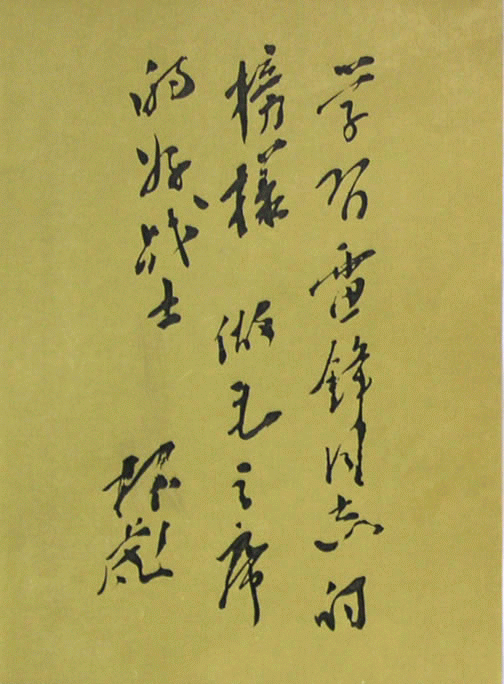 学習雷鋒同志的
榜樣 做毛主席
的好战士
林彪